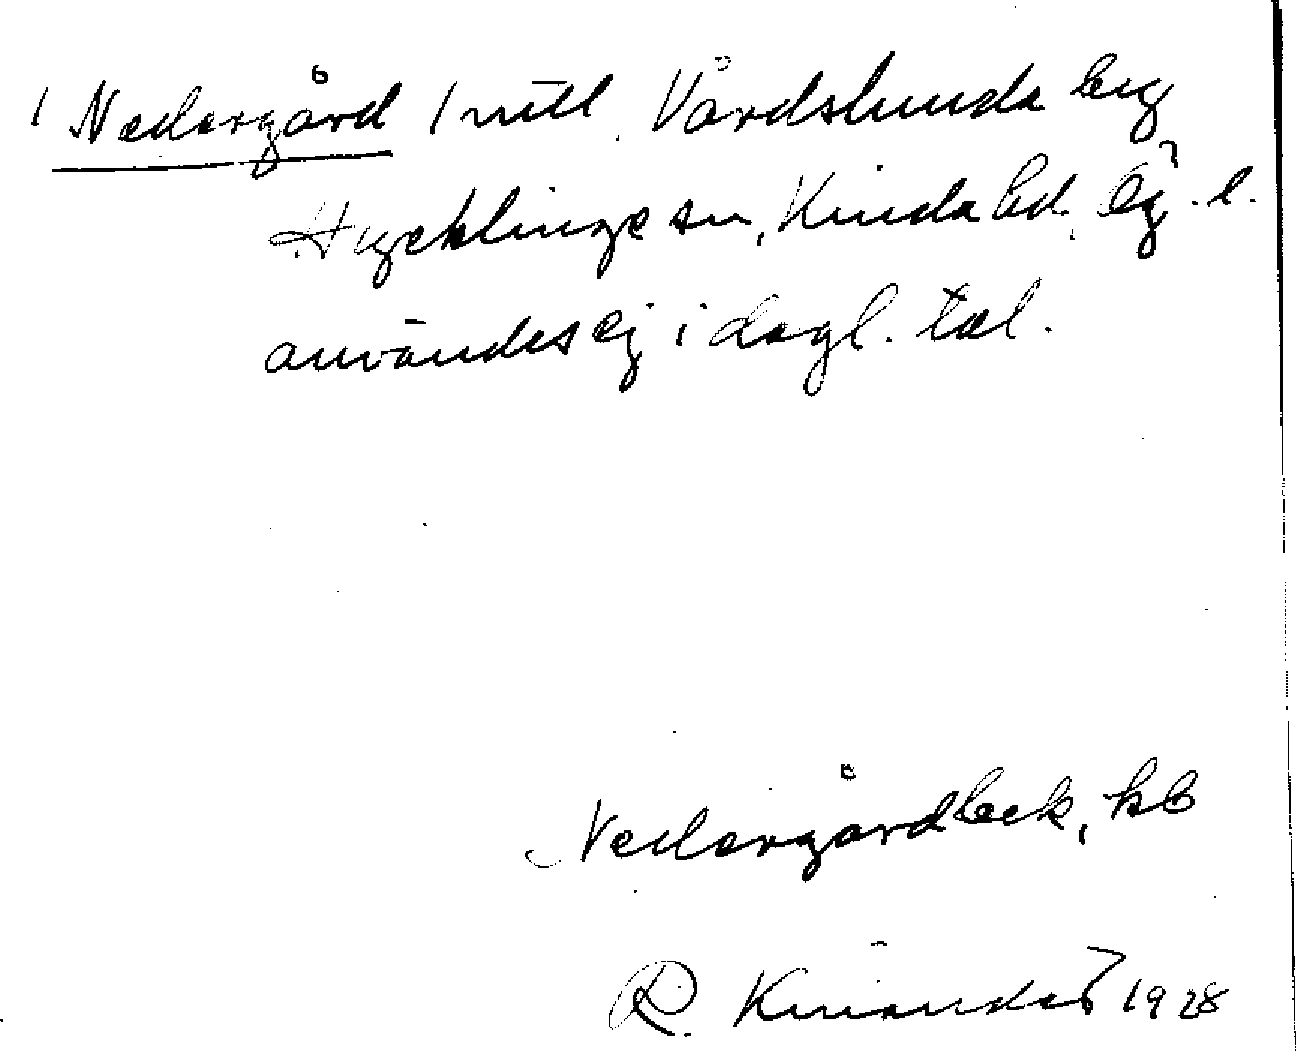 1 Nedergård 1 mtl. Vårdslunda by
Hycklinge sn, Kinda hd. Ög. l.
användes ej i dagl. tal.
Nedergårdbeck, kb
R. 1928